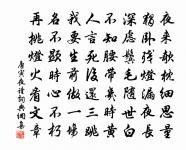 夜來欹枕細思量
獨臥殘燈漏夜長
深慮鬢毛隨世白
不知腰帶幾時黃
人言死後還三跳
我要生前做一場
名不顯時心不朽
再挑燈火看文章
唐寅夜讀詩典網集